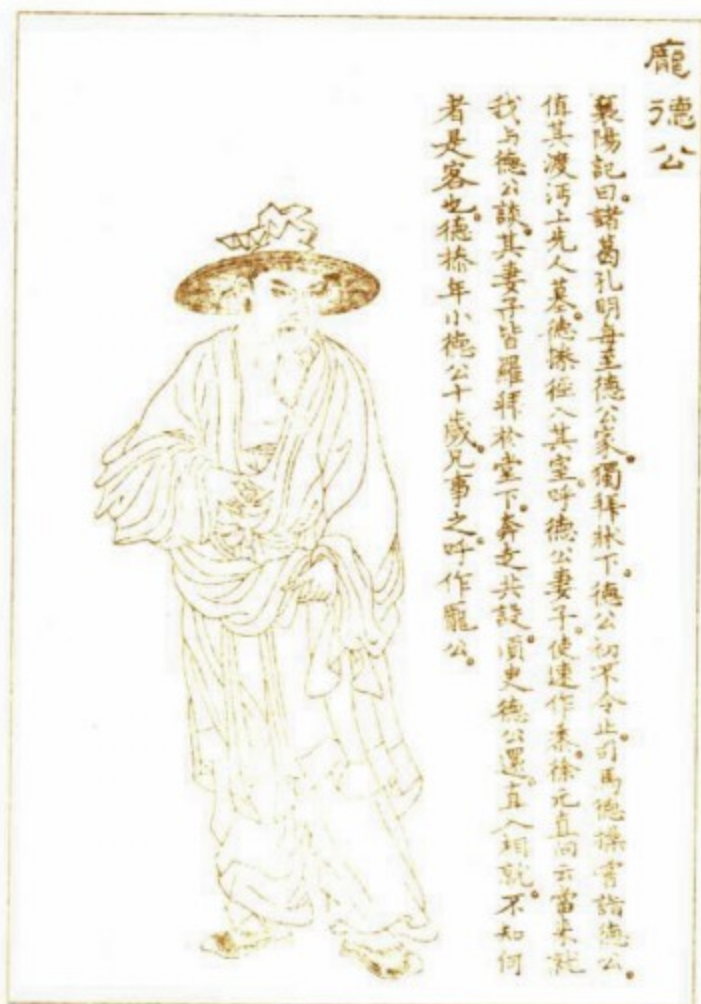 龐德公
襄陽記曰。諸葛孔明每至德公家。獨拜牀下。德公初不令止。司馬德操嘗詣德公。
值其渡沔上先人墓。德操徑入其室。呼德公妻子。使速作黍。徐元直向云當來就
我与德公談。其妻子皆羅拜於堂下。奔走共設。須臾德公還。直入相就。不知何
者是客也。德操年小德公十歲。兄事之。呼作龐公。